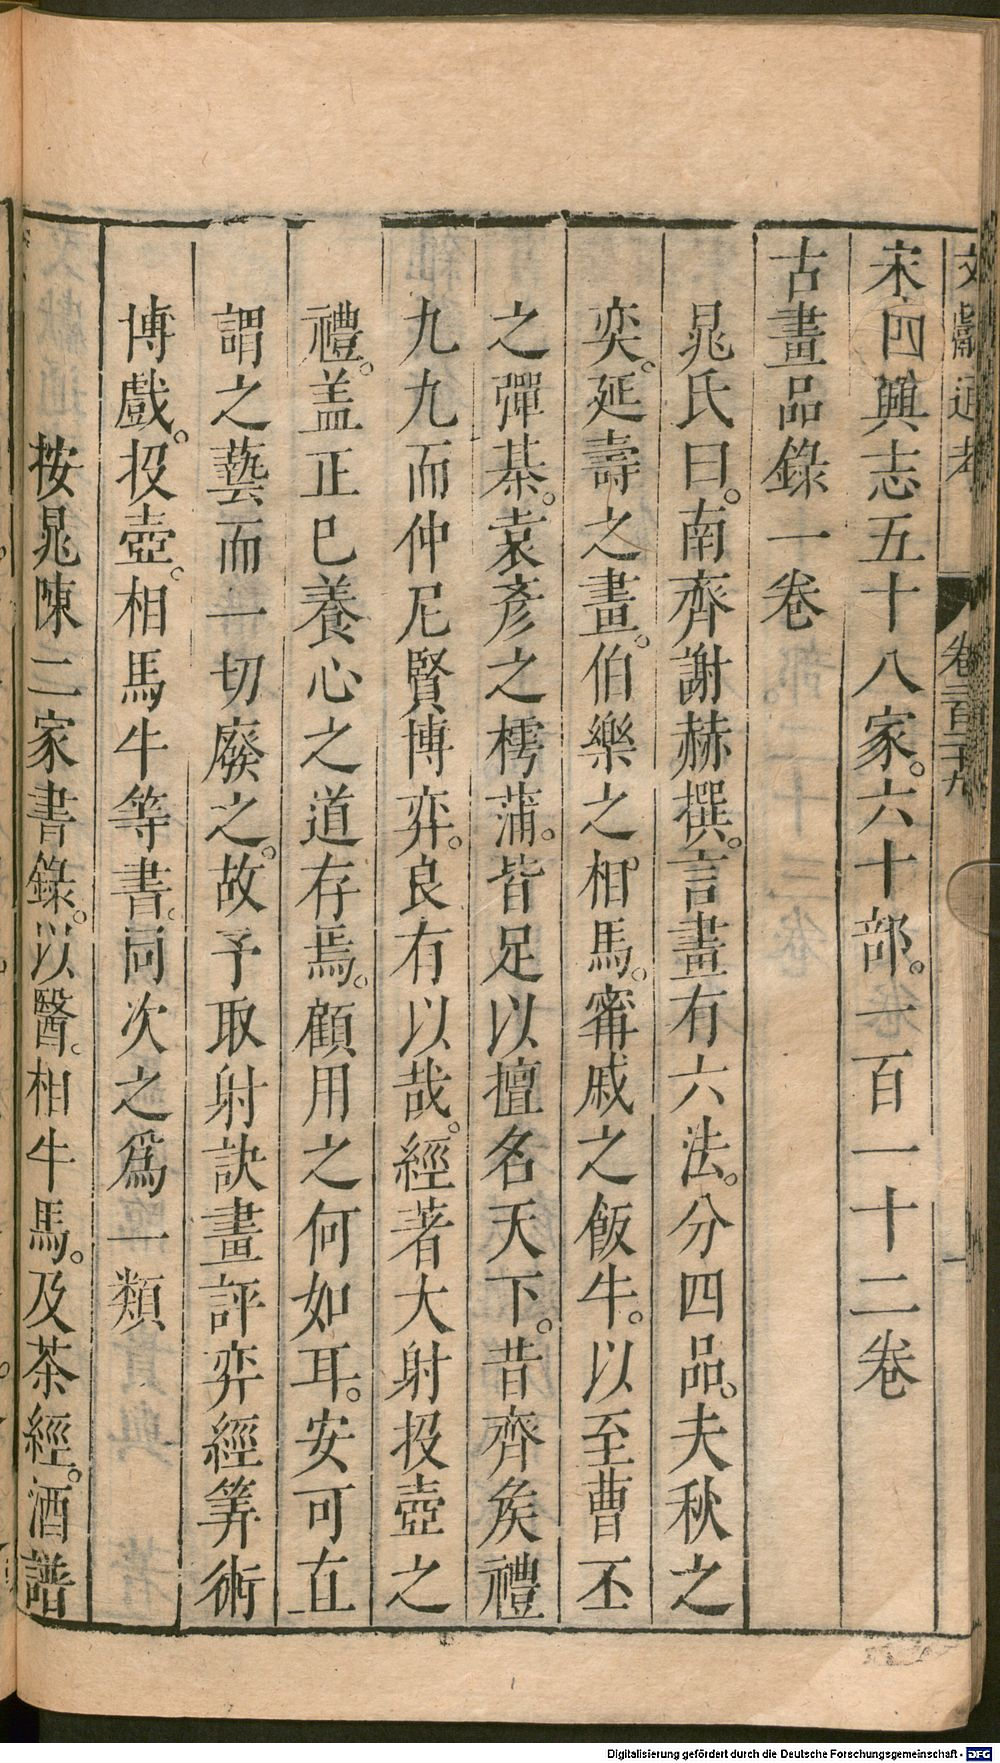 文獻通考 卷二百二十九
宋四興志五十八家。六十部。一百一十二卷
古畫品錄一卷
晁氏曰。南齊謝赫撰。言畫有六法。分四品。夫秋之
奕。延壽之畫。伯樂之相馬。甯戚之飯牛。以至曹丕
之彈棊。袁彥之樗蒲。皆足以擅名天下。昔齊矦禮
九九而仲尼賢博弈。良有以哉。經著大射投壺之
禮。盖正已養心之道存焉。顧用之何如耳。安可直
謂之藝而一切廢之。故予取射訣畫評弈經筭術
博戲。投壺。相馬牛等書。同次之爲一類
按晁陳二家書錄。以醫。相牛馬。及茶經。酒譜
Digitalisierung gefördert durch die Deutsche Forschungsgemeinschaft - DFG